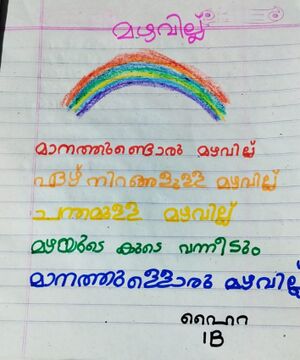 മഴവില്ല്
മാനത്തുണ്ടൊരു മഴവില്ല്
ഏഴ് നിറങ്ങളുള്ള മഴവില്ല്
ചന്തമുള്ള മഴവില്ല്
മഴയുടെ കൂടെ വന്നീടും
മാനത്തുള്ളൊരു മഴവില്ല്
ഹൈറ
1B